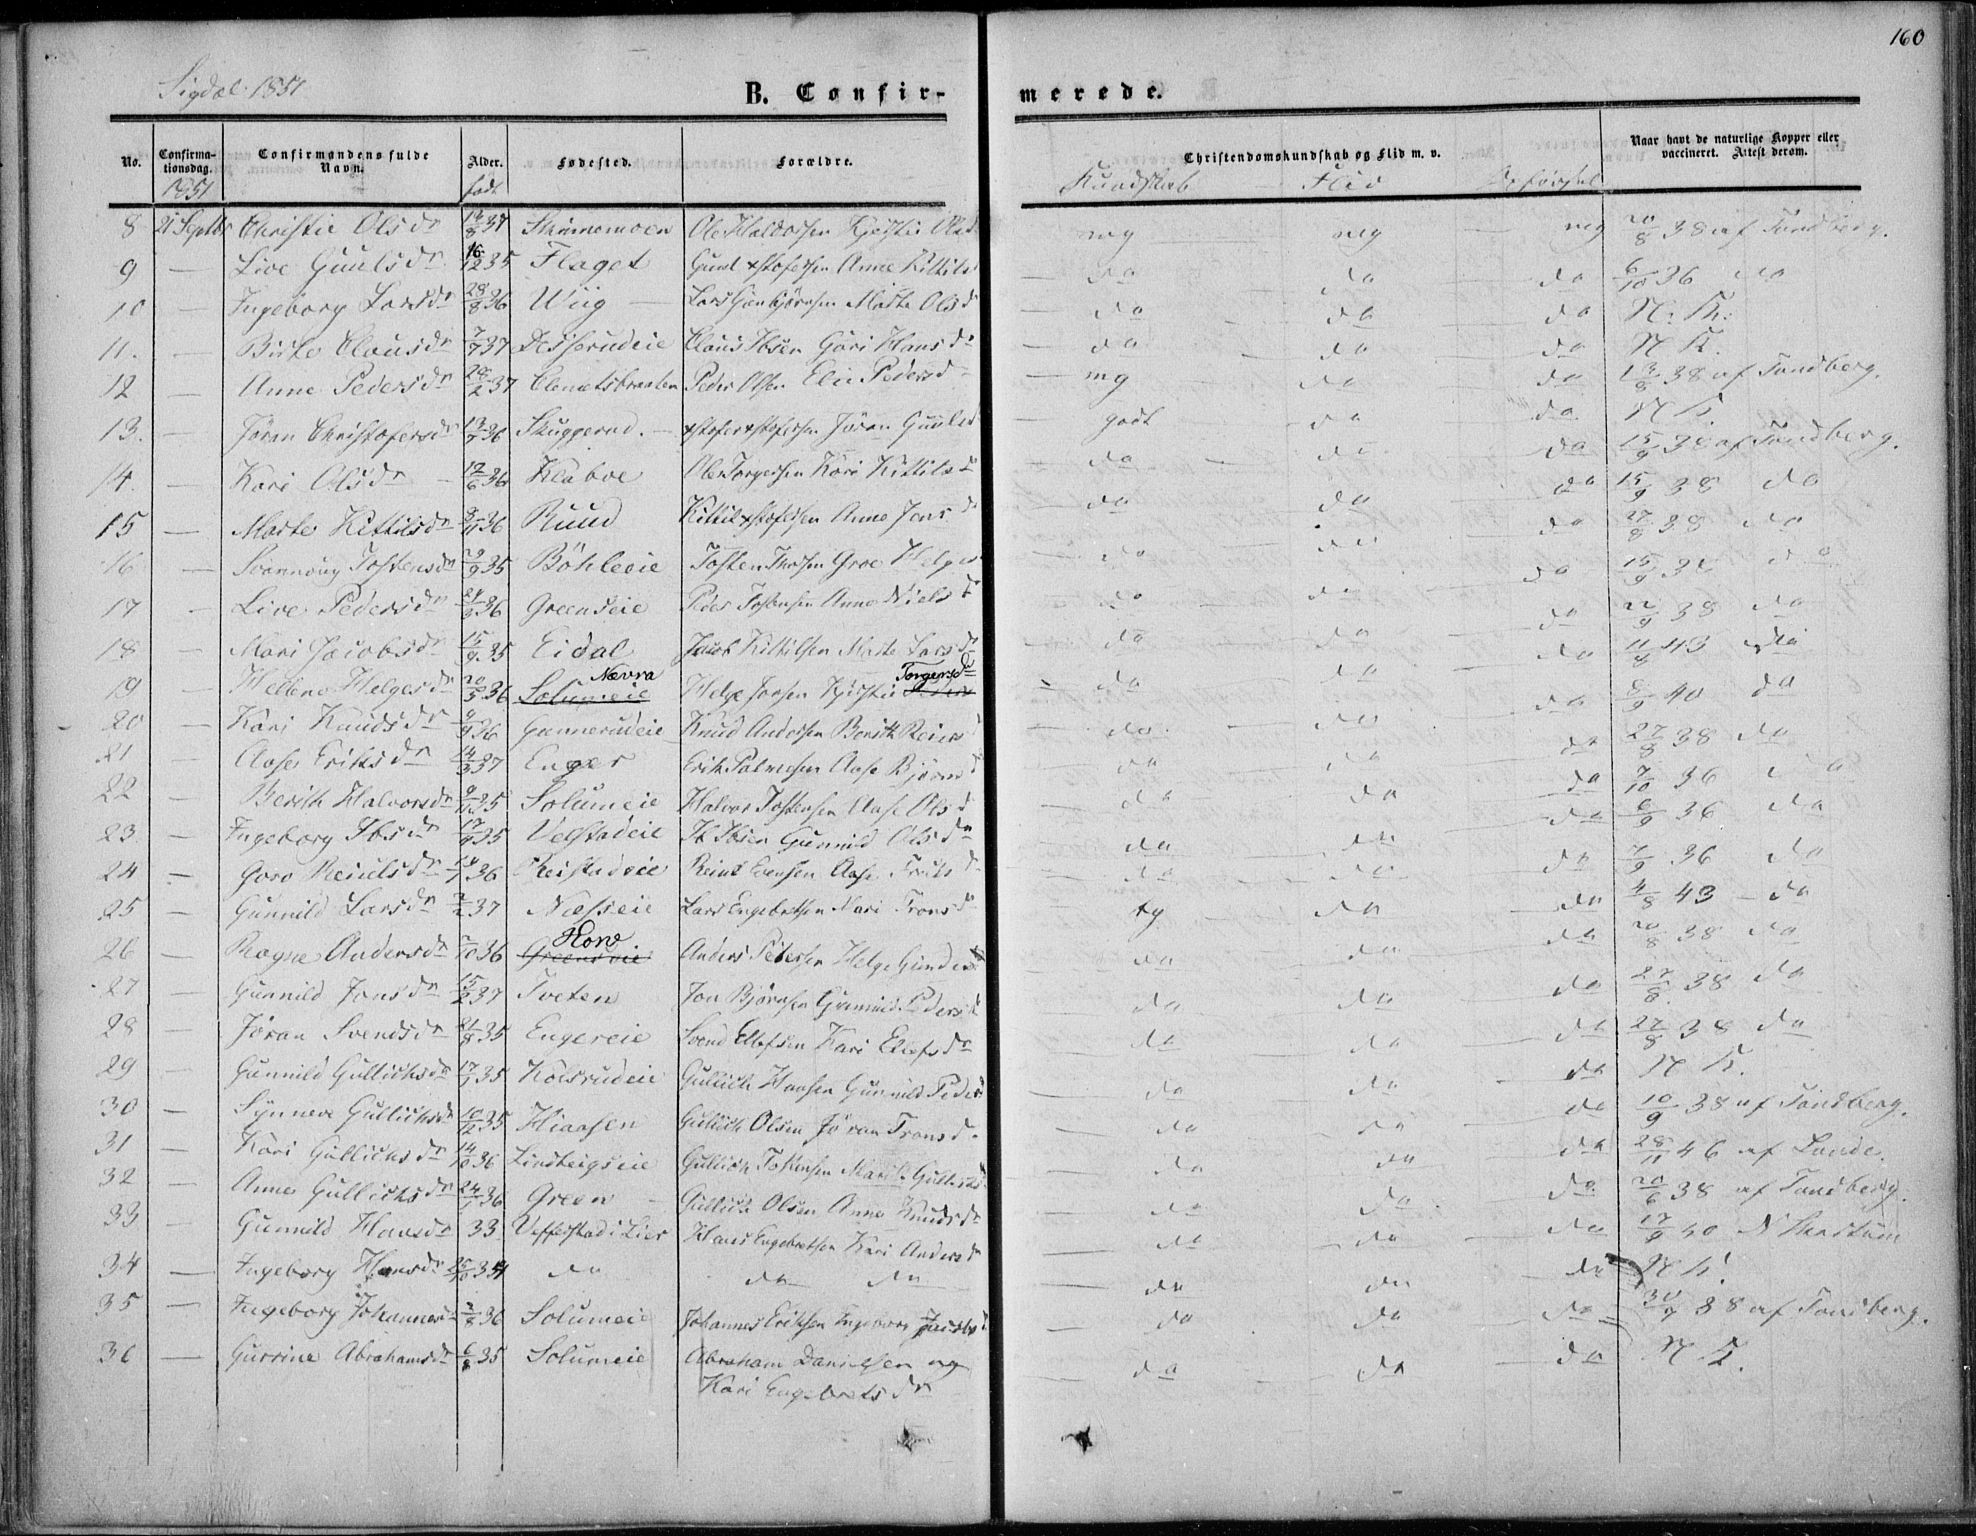 160
Sigdal 1851
B. Confir-
merede.
No.
Confirma-
tionsdag.
1851
Confirmandens fulde
Navn.
Alder.
født
Fødested.
Forældre.
Christendomskundskab og Flid m. v.
Kundskab Flid Opførsel
Naar havt de naturlige Kopper eller
vaccineret. Attest derom.
8 21 Septbr Christie Olsdr 37 Ole Haldorsen Kjerstie mg mg mg 20/8 38 af Tandberg.
9 — Live Guulsdr 16/12 35 Flaget Guul Xstofersen Anne Kittilsd do do do 6/10 36 do
10 — Ingeborg Larsdr 28/8 36 Wiig — Lars Marte Olsdr do do do N. K.
11. — Birte Clausdr 7/7 37 Claus Ibsen Göri Hansdr do do do N K.
12 — Anne Pedersdr 28/2 37 Clemetsbraaten Peder Olsen Elie Pedersd mg do do 38 af Tandberg.
13. — Jøran Christofersdr 13/7 36 Skuggerud. — Xstofer Xstofersen Jöran Guulsd godt do do N K.
14. — Kari Olsdr 12/6 36 Klaboe Ole Torgersen Kari Kittilsd do do do 15/9 38 af Tandberg.
15 — Marte Kittilsdr 36 Ruud Kittil Xstofersen Anne Jensd do do do 15/9 38 do
16 — Tostensdr 35 Böhleeie Tosten Groe Helges do do do 27/8 38 do
17 — Live Pedersdr 36 Greenseie Peder Tostensen Anne Nielsd do do do 15/9 38 do
18 — Mari Jacobsdr 15/9 35 Eidal Jacob Kittilsen Marte Larsdr do do do 38 do
19 — Hellene Helgesdr 20/5 36 Solumeie Nævra Helge Kjerstie Torgersdr do do do 11/4 43 do
20 — Kari Knudsdr 36 Gunnerudeie Knud Andersen Berith Reiers do do do 8/9 40 do
21 — Aase Eriksdr 14/3 37 Enger Erik Palmesen Aase Björnd do do do 27/8 38 do
22 — Berith Halvorsdr 35 Solumeie Halvor Tostensen Aase Olsd do do do 7/10 36 do
23. — Ingeborg Ibsdr 35 Velstadeie Ib Ibsen Gunnild Olsdr do do do 6/9 36 do
24 — Goro Reiersdr 36 Aase do do do 7/9 36 do
25 — Gunnild Larsdr 37 Næsseie Lars Engebretsen Mari Tronsdr tg do do 4/8 43 — do
26 — Ragne Andersdr 36 Greenseie Horv Anders Pedersen Helge Gunders do do do 20/8 38 do
27 — Gunnild Jonsdr 15/2 37 Tveten Jon Björnsen Gunnild Pedersd do do do 27/8 38 do
28 — Jöran Svendsdr 21/8 35 Engereie Svend Ellefsen Kari Ellefsdr do do do 27/8 38 do
29 — Gunnild Gullichsdr 35 Kolsrudeie Gullich Hansen Gunnild Peders do do do N K.
30 — Synneve Gullichsdr 10/12 35 Hiaasen Gullich Olsen Jöran Tronsd. do do do 10/9 38 af Tandberg.
31 — Kari Gullichsdr 14/10 36 Gullich Tostensen do do do 28/11 46 af Lunde.
32 — Anne Gullichsdr 36 Green — Gullich Olsen Anne Knudsdr do do do 20/6 38 af Tandberg.
33 — Gunnild Hansdr 33 i Lier Hans Engebretsen Kari Andersdr do do do 17/9 40
34 — Ingeborg Hansdr 34 do do do do do do N K.
35 — Ingeborg Johannesdr 36 Solumeie Johannes Eriksen Ingeborg do do do 38 af Tandberg.
36 — Gurrine Abrahamsdr 35 Solumeie Abraham Danielsen og do do do N K.
Kari Engebretsdr